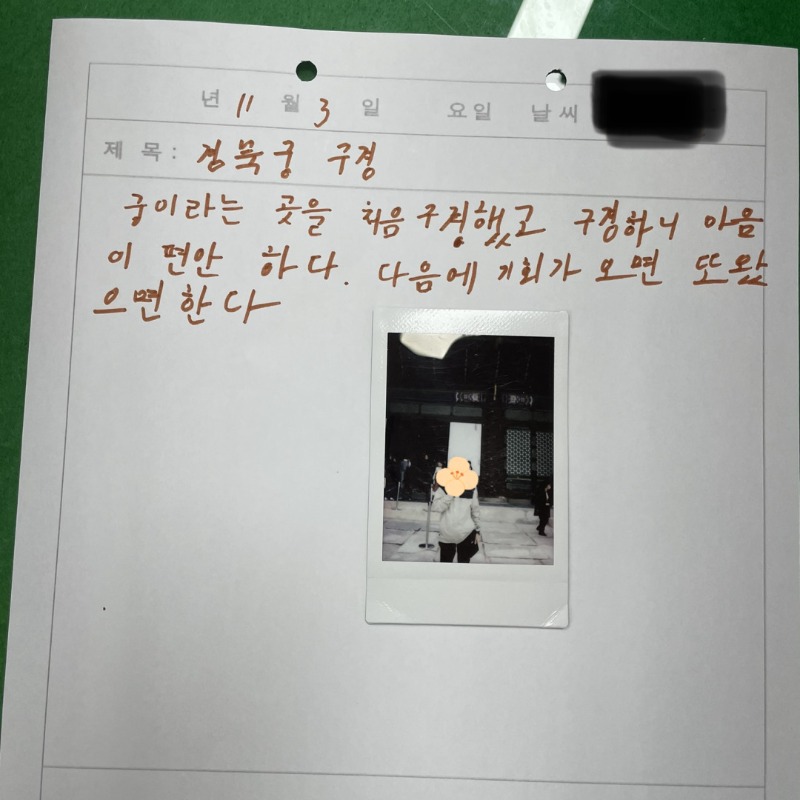 년 11 월 3 일 요일 날씨
제 목 : 경묵궁 구경
궁이라는 곳을 처음 구경했고 구경하니 마음
이 편안 하다. 다음에 기회가 오면 또 왔
으면 한다